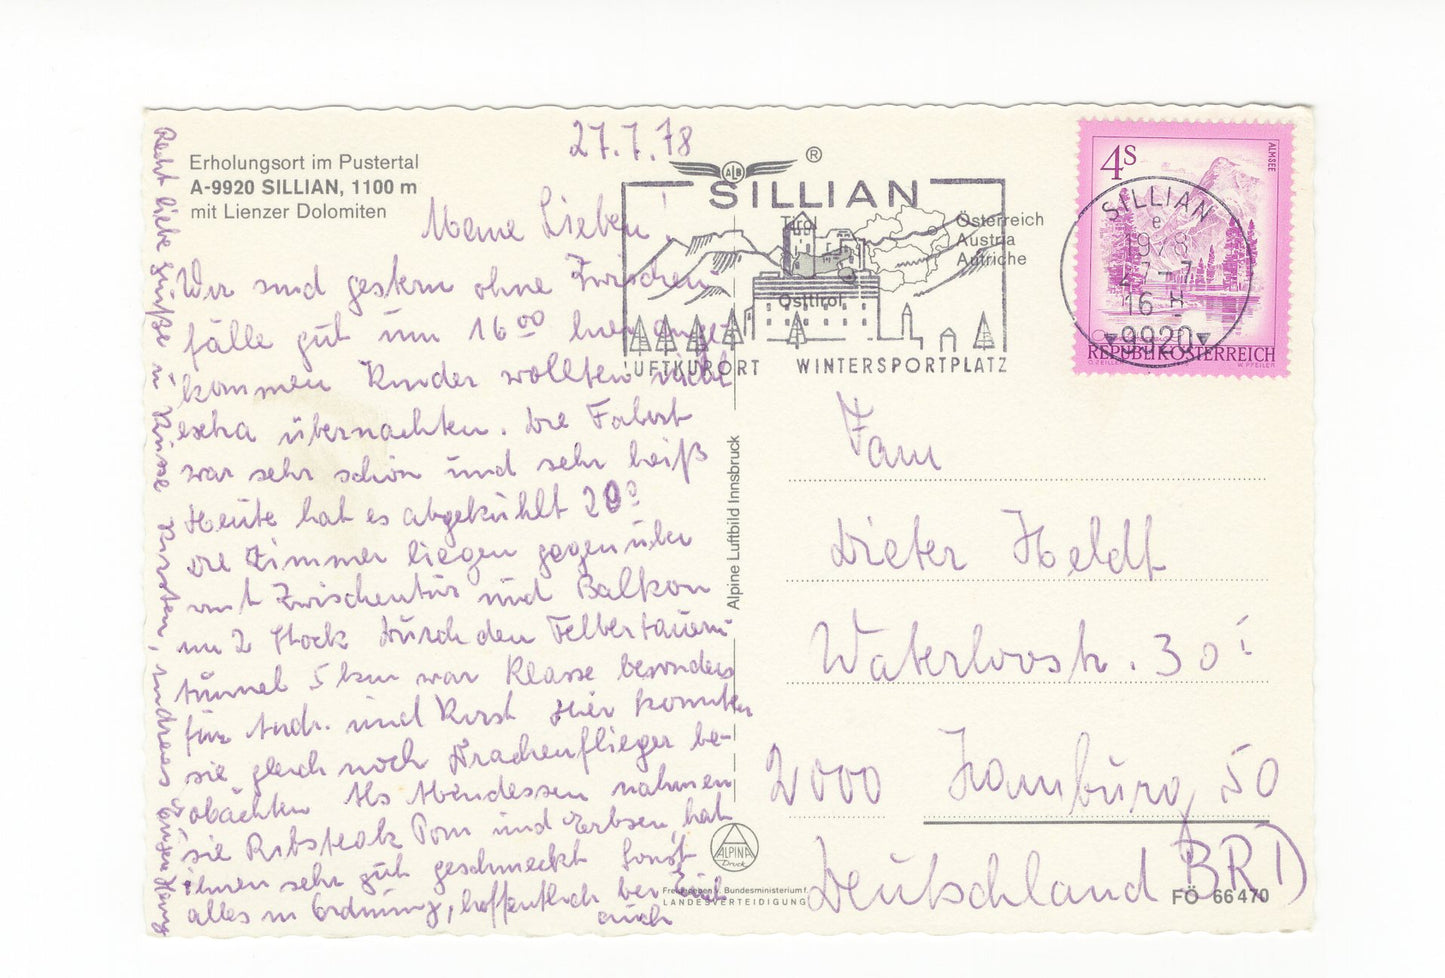 27.7.78
Erholungsort im Pustertal
A-9920 SILLIAN, 1100 m
mit Lienzer Dolomiten
Meine Lieben!
Wir sind gestern ohne Zwischen-
fälle gut um 16⁰⁰ hier ange-
kommen Kinder wollten nicht
extra übernachten. Die Fahrt
war sehr schön und sehr heiß
Heute hat es abgekühlt 20°
die Zimmer liegen gegenüber
mit Zwischentür und Balkon
im 2 Stock Durch den Felbertauern
tunnel 5 km war Klasse besonders
für Andr. und Kirst Hier konnten
sie gleich noch Drachenflieger be-
obachten Als Abendessen nahmen
sie Ribsteak Pom und Erbsen, hat
ihnen sehr gut geschmeckt Sonst
alles in Ordnung, hoffentlich bei Euch
auch
Recht liebe Grüße u Küsse Kirsten, Andreas
SILLIAN
ALB
®
Tirol
Osttirol
Österreich
Austria
Autriche
LUFTKURORT WINTERSPORTPLATZ
4S
ALMSEE
SILLIAN
e
1978
27-7
16 H
9920
REPUBLIK ÖSTERREICH
W. PFEILER
Alpine Luftbild Innsbruck
Fam
Dieter Heldt
Waterloostr. 30
2000 Hamburg 50
Deutschland BRD
ALPINA
Druck
Freigegeben v. Bundesministerium f.
LANDESVERTEIDIGUNG
FÖ 66470